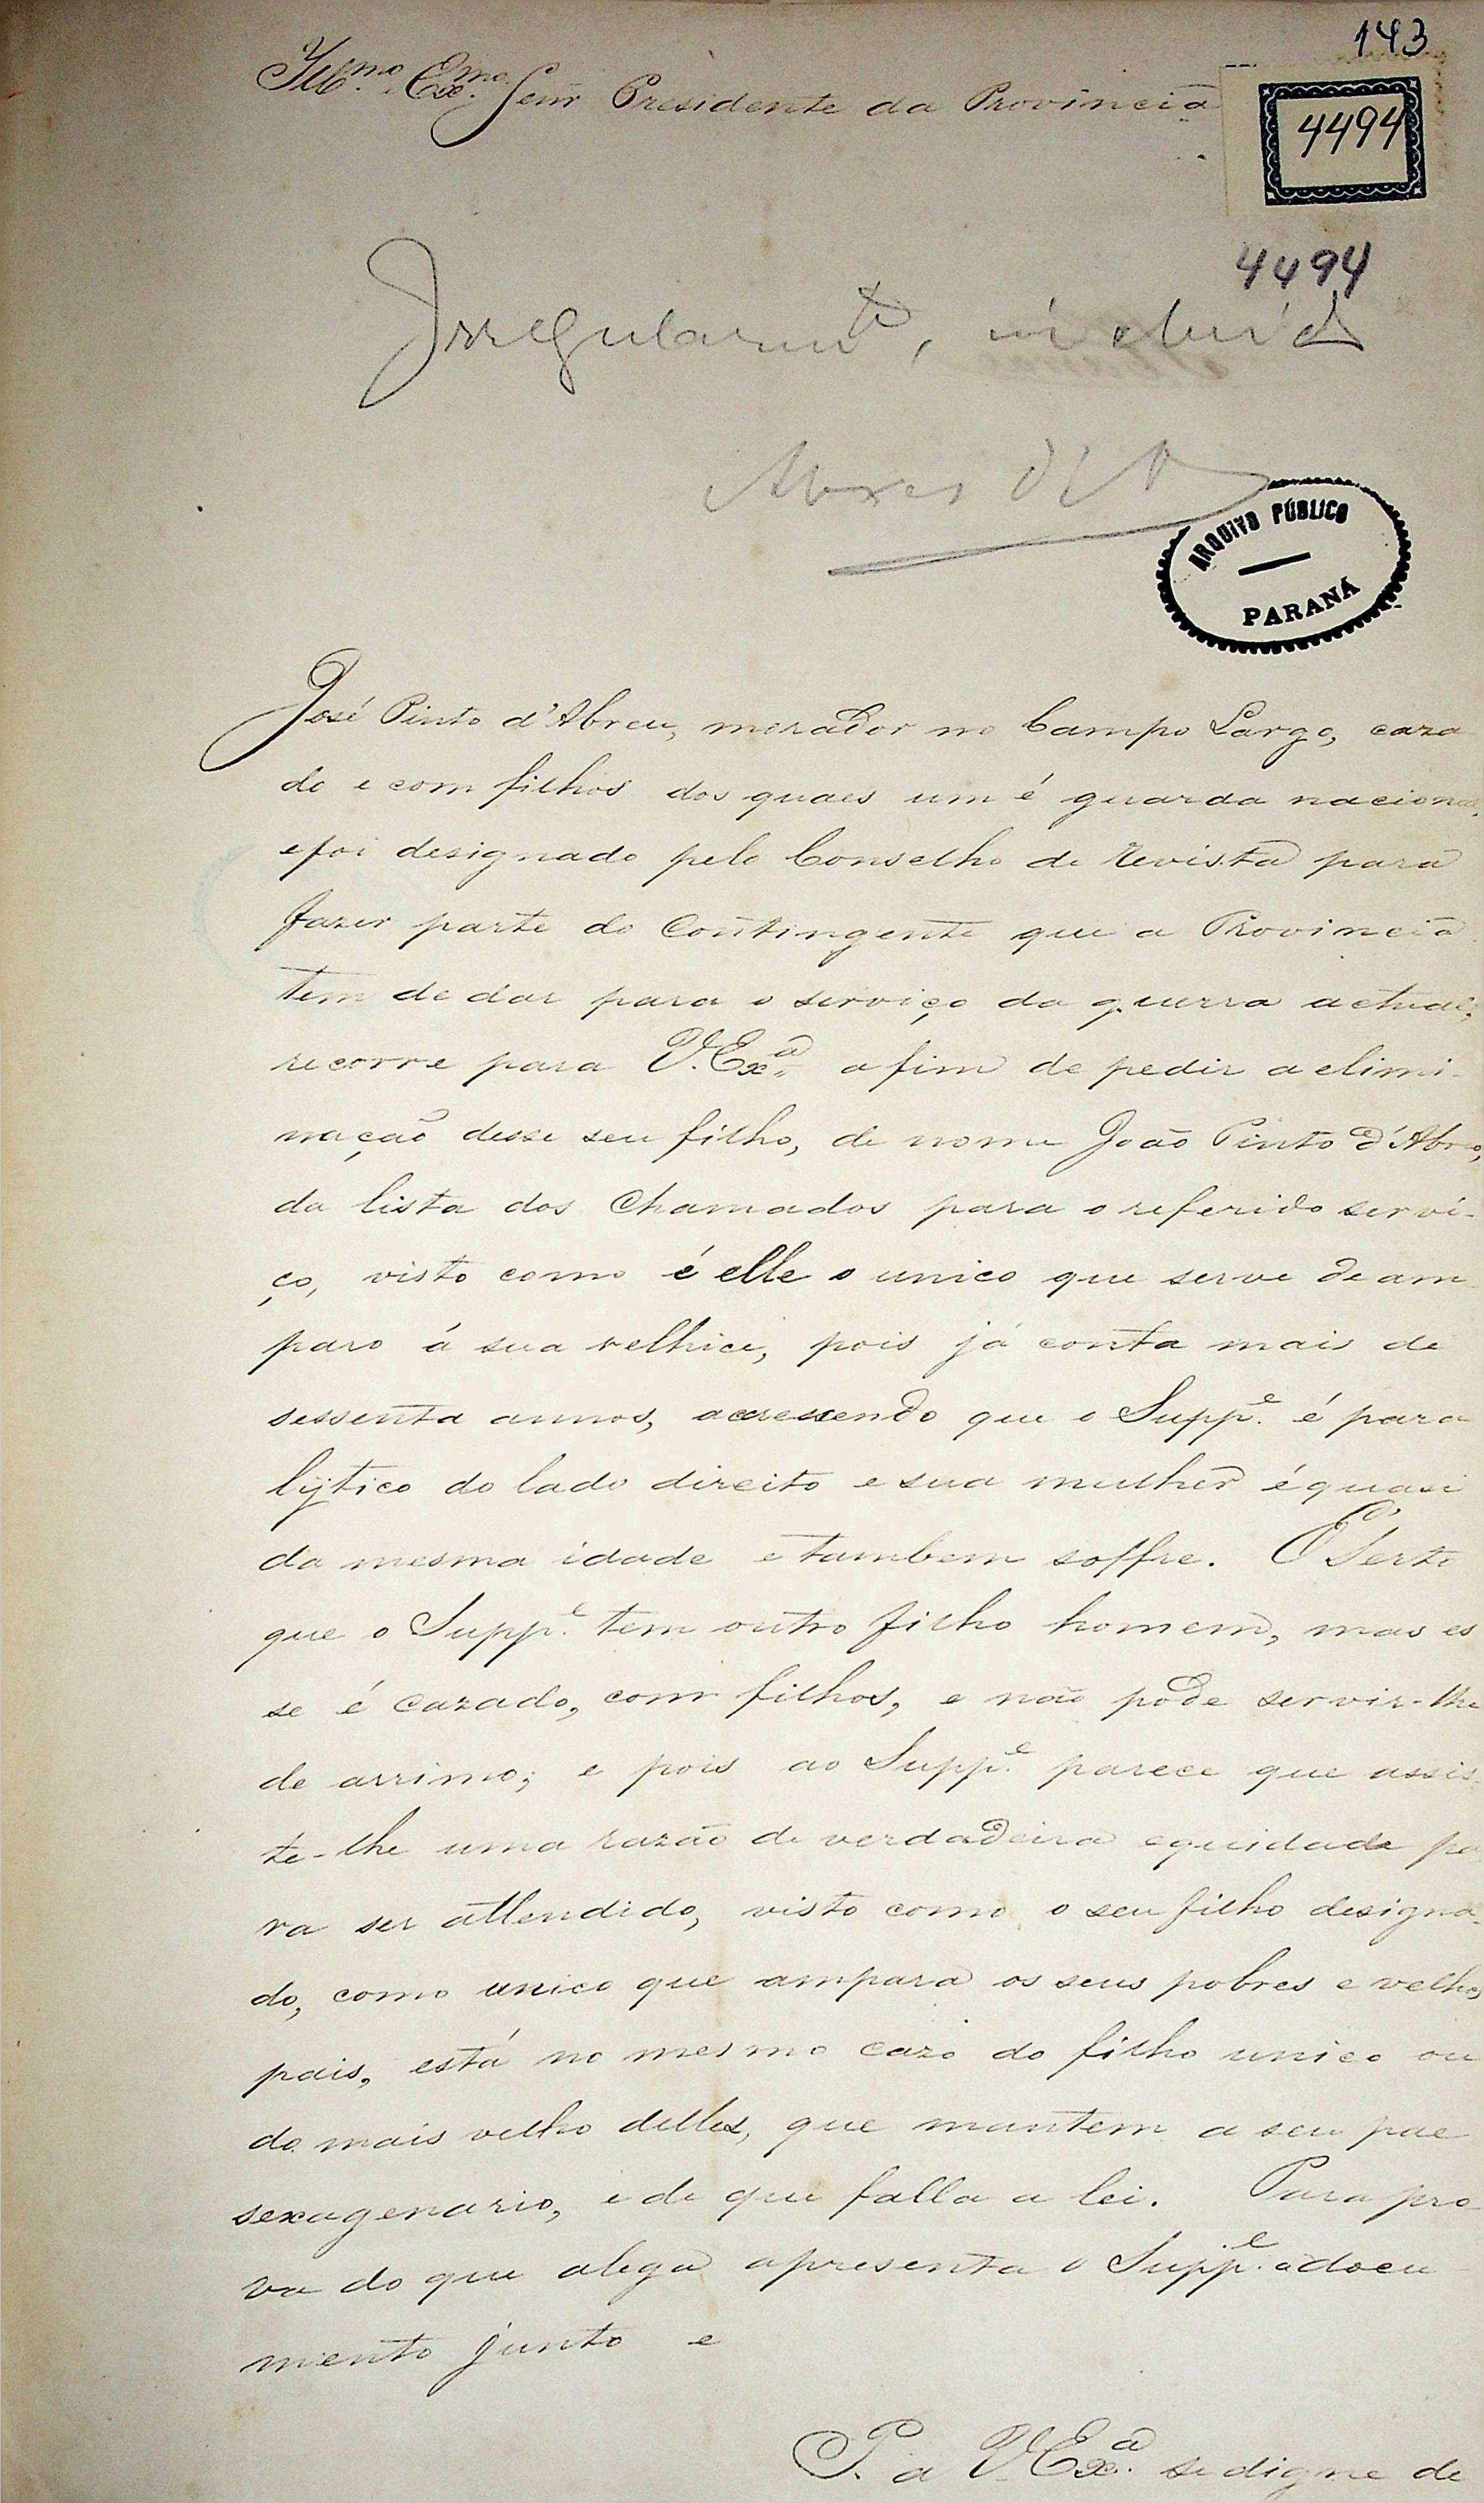 143
Illmo. Exmo. Senr Presidente da Provincia
4494
4494
Irregularmte,
ARQUIVO PÚBLICO
PARANÁ
José Pinto d'Abreu, morador no Campo Largo, caza
do e com filhos dos quaes um é guarda nacional,
e foi designado pelo Conselho de Revista para
fazer parte do Contingente que a Provincia
tem de dar para o serviço da guerra actual,
recorre para V. Exa. a fim de pedir a elimi-
nação desse seu filho, de nome João Pinto d'Abreo,
da lista dos Chamados para o referido servi-
ço, visto como é elle o unico que serve de am
paro á sua velhice, pois já conta mais de
sessenta annos, acrescendo que o Suppe. é para
lytico do lado direito e sua mulher é quasi
da mesma idade e tambem soffre. É Serto
que o Suppe. tem outro filho homem, mas es
se é cazado, com filhos, e não pode servir-lhe
de arrimo; e pois ao Suppe. parece que assis-
te-lhe uma razão de verdadeira equidade pa
ra ser attendido, visto como o seu filho designa-
do, como unico que ampara os seus pobres e velhos
pais, está no mesmo cazo do filho unico ou
do mais velho delles, que mantem a seu pae
sexagenario, e de que falla a lei. Para pro
va do que alega apresenta o Suppe. o docu
mento junto e
P. a V. Exa. se digne de